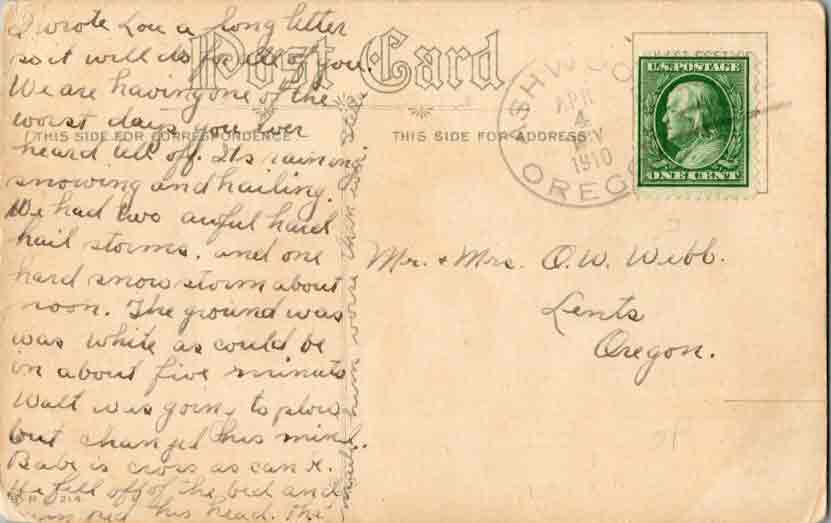 I wrote Lou a long letter
so it will do for all of you.
We are having one of the
worst days you ever
heard tell of. Its raining
snowing and hailing.
We had two awful hard
hail storms. and one
hard snow storm about
noon. The ground was
was white as could be
in about five minuts
Walt was going to plow
but changed his mind.
Babe is cross as can be.
He fell off of the bed and
his head. This
made him worse than ever
Post Card
THIS SIDE FOR CORRESPONDENCE
THIS SIDE FOR ADDRESS
ASHWOOD
APR
4
1910
OREGON
U.S. POSTAGE
ONE CENT
Mr. + Mrs. O.W. Webb.
Lents
Oregon.
214